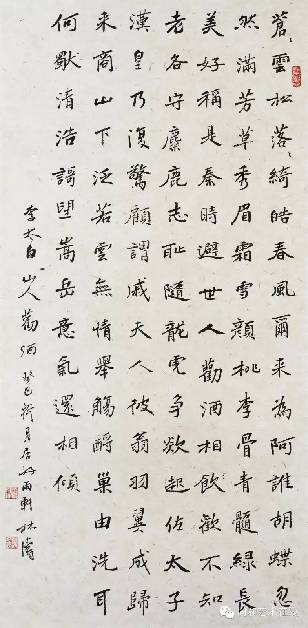 蒼〻雲松落〻綺皓春風爾來為阿誰胡蝶忽
然滿芳草秀眉霜雪顏桃李骨青髓綠長
美好稱是秦時避世人勸酒相飲歡不知
老各守麋鹿志恥隨龍虎争欻起佐太子
漢皇乃復驚顧謂戚夫人彼翁羽翼成歸
來商山下泛若雲無情舉觴酹巢由洗耳
何獨清浩謌望嵩岳意氣還相傾
李太白山人勸酒癸巳荷月居雨軒林濤